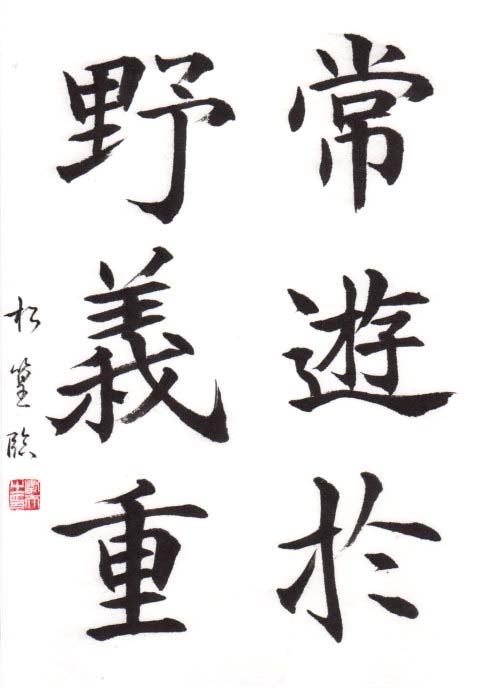 常遊於
野義重
松篁臨